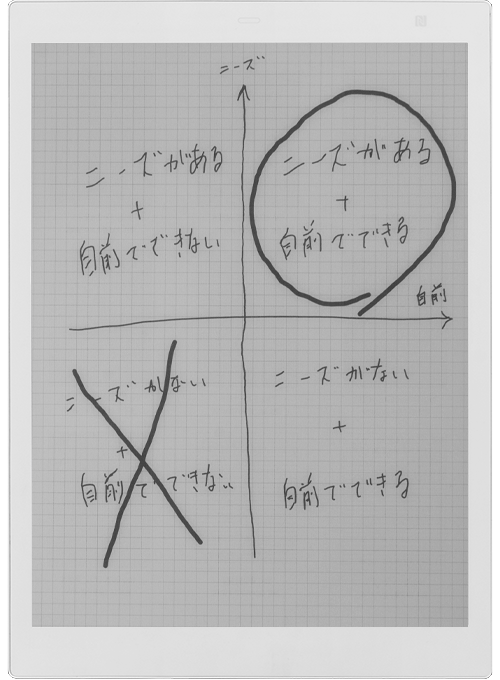 ニーズ
ニーズがある
+
自前でできない
ニーズがある
+
自前でできる
自前
ニーズがない
+
自前でできない
ニーズがない
+
自前でできる